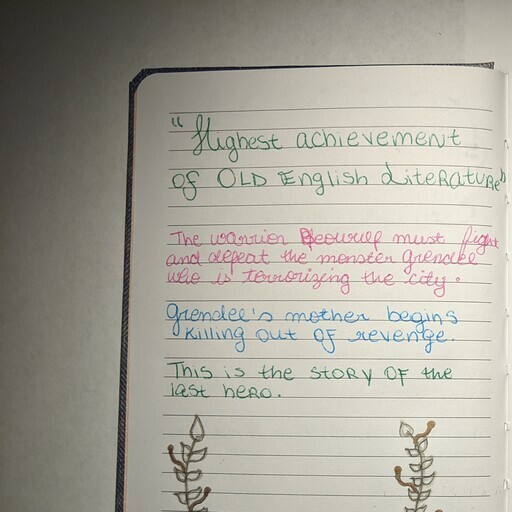 "Highest achievement
of OLD English LiteRatuRe"
The warrior Beowulf must fight
and defeat the monster Grendel
who is terrorizing the city.
Grendel's mother begins
killing out of revenge.
This is the story of the
last hero.